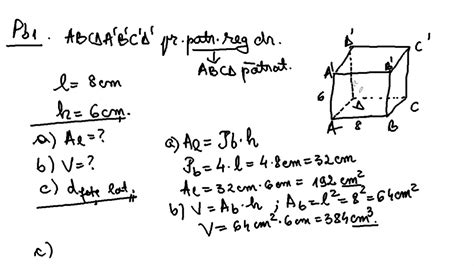 Pb1. ABCDA'B'C'D' pr. patr. reg dr.
ABCD pătrat.
l = 8cm
h = 6cm.
a) Al = ?
b) V = ?
c) d fețe lat.
a) Al = Pb · h
Pb = 4 · l = 4 · 8cm = 32cm
Al = 32cm · 6cm = 192 cm²
b) V = Ab · h ; Ab = l² = 8² = 64cm²
V = 64cm² · 6cm = 384cm³.
c)
D'
C'
A'
B'
6
D
C
A
8
B